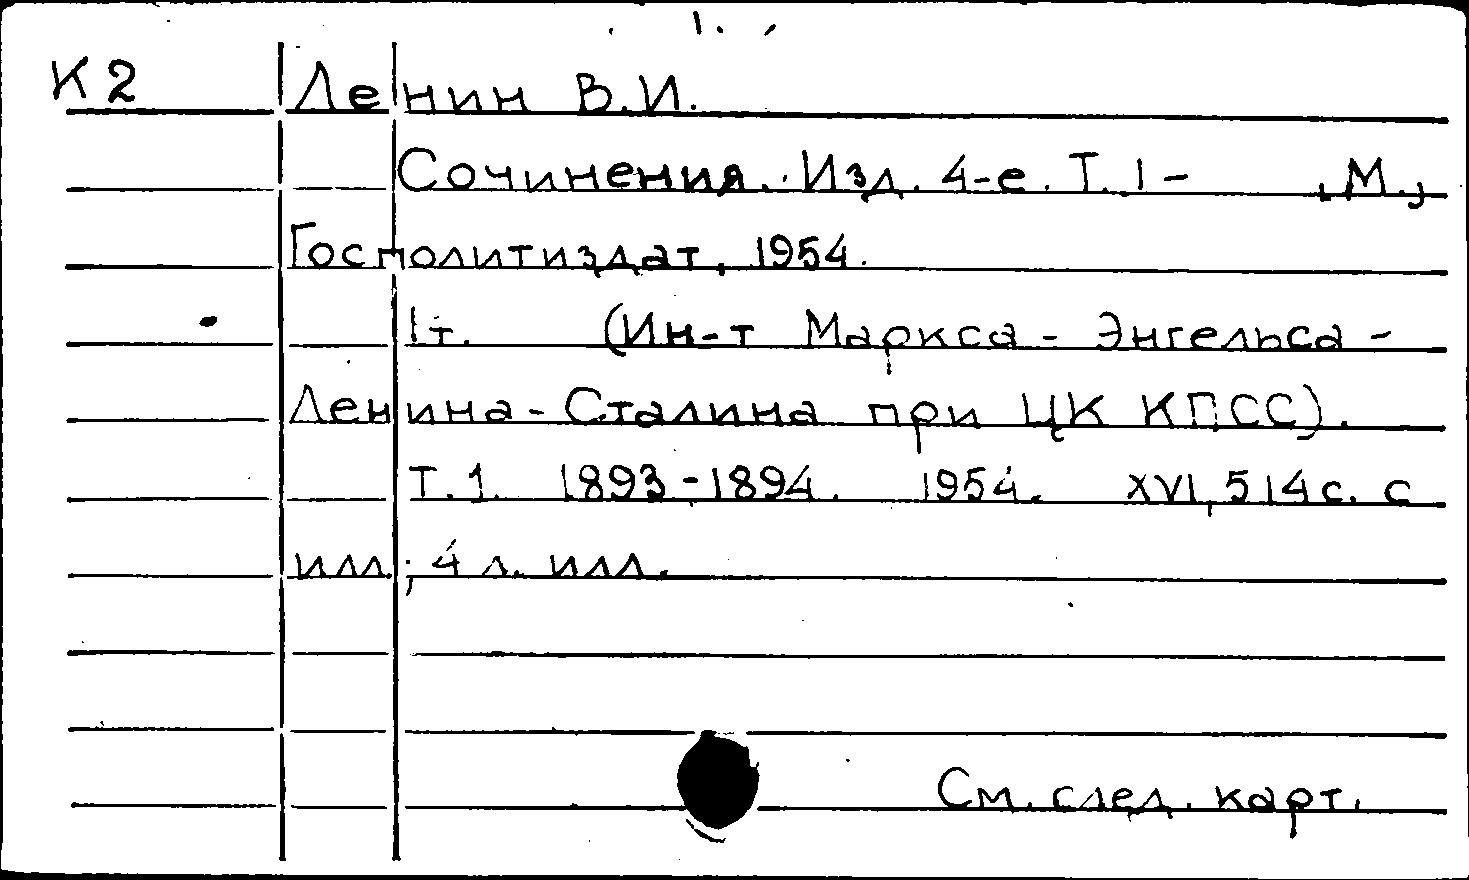 1.
К2 Ленин В.И.
Сочинения. Изд. 4-е. Т. 1- , М.,
Госполитиздат, 1954.
1т. (Ин-т Маркса - Энгельса -
Ленина - Сталина при ЦК КПСС).
Т.1. 1893-1894. 1954. XVI, 514 с. с
илл.; 4 л. илл.
См. след. карт.